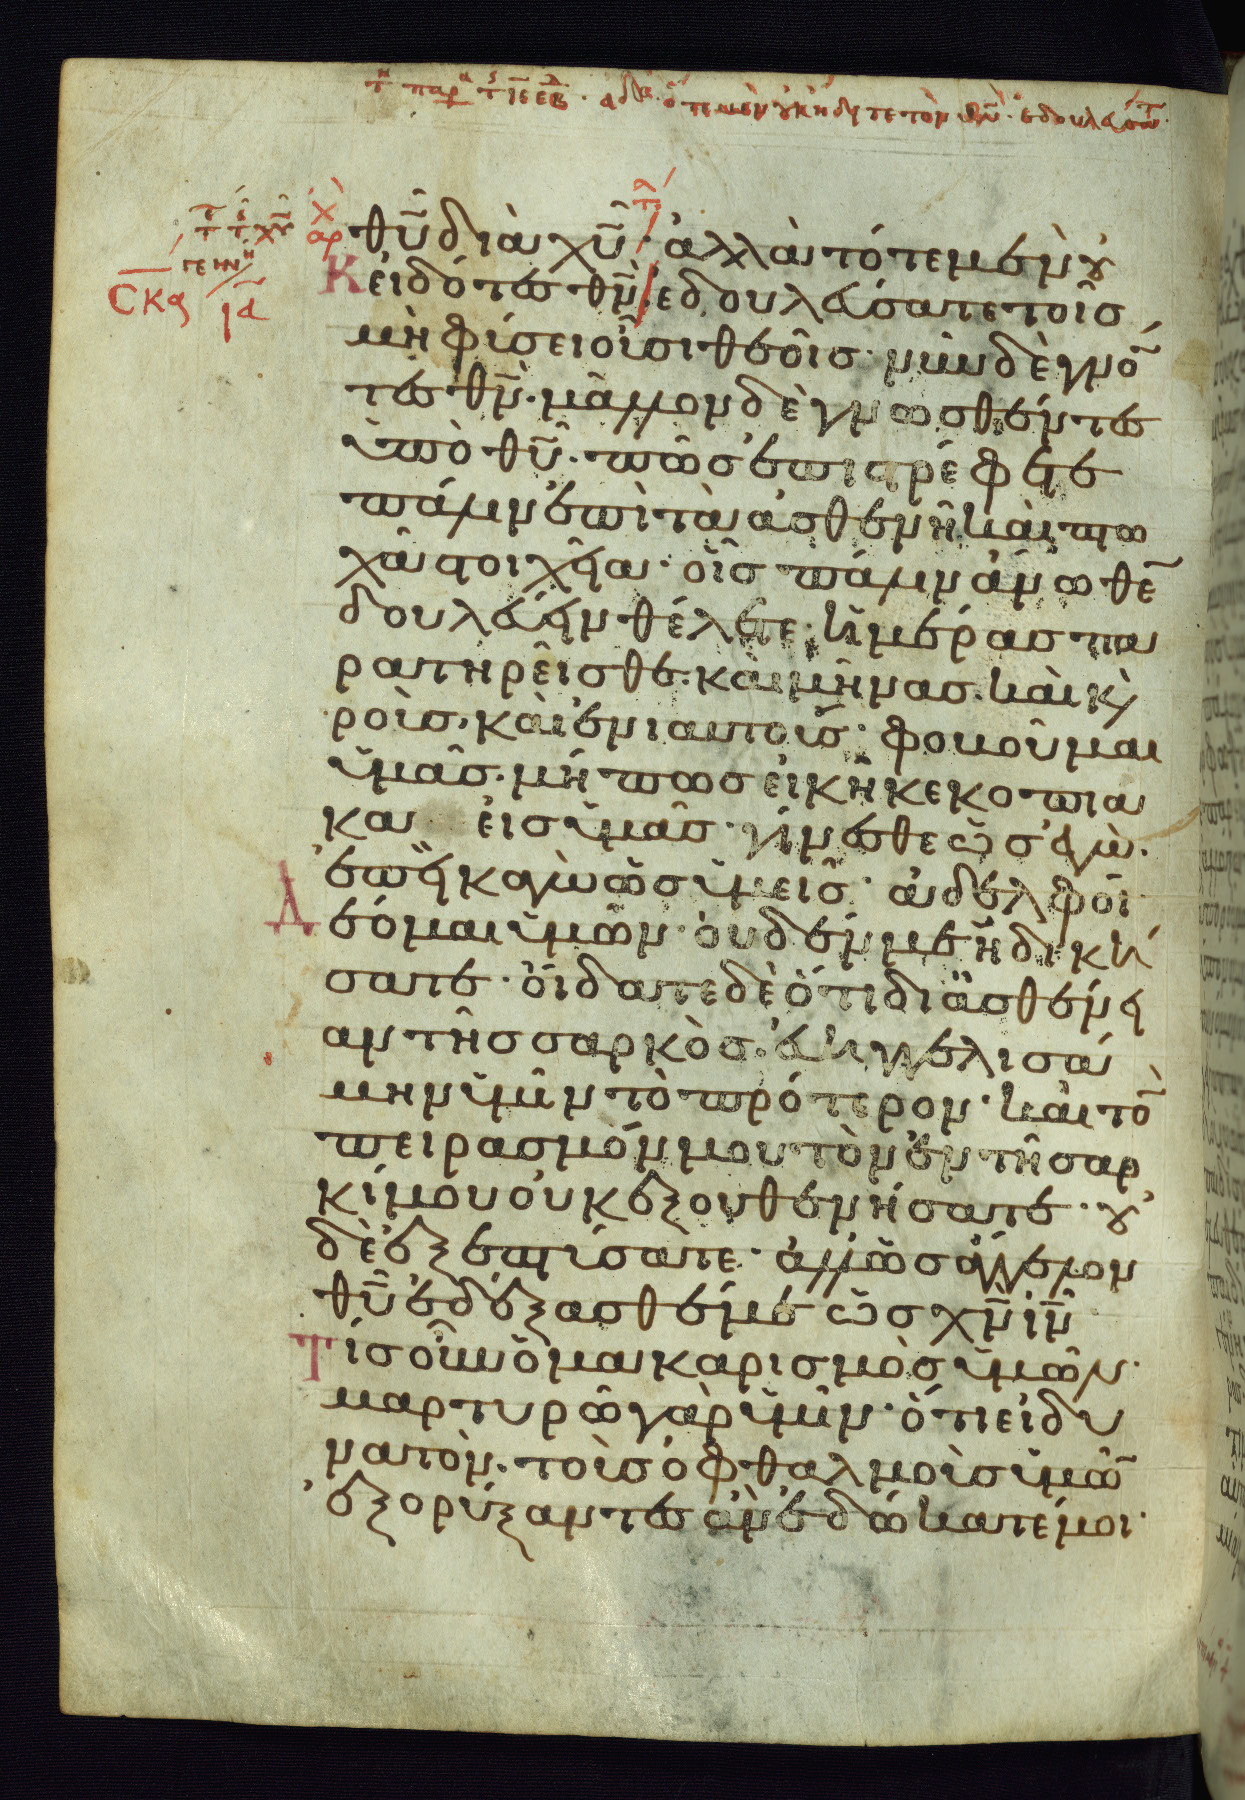 θ͞υ διὰ χ͞υ· ἀλλὰ τότε μὲν οὐ
Κ εἰδότες θ͞ν· ἐδουλεύσατε τοῖς
μὴ φύσει οὖσι θεοῖς· νῦν δὲ γνό
τες θ͞ν· μᾶλλον δὲ γνωσθέντες
ὑπὸ θ͞υ· πῶς ἐπιστρέφετε
πάλιν ἐπὶ τὰ ἀσθενῆ καὶ πτω
χὰ στοιχεῖα· οἷς πάλιν ἄνωθε
δουλεύειν θέλετε· ἡμέρας πα
ρατηρεῖσθε· καὶ μῆνας· καὶ και
ροὺς· καὶ ἐνιαυτούς· φοβοῦμαι
ὑμᾶς· μή πως εἰκῆ κεκοπία
κα εἰς ὑμᾶς· γίνεσθε ὡς ἐγὼ·
ἐπεὶ κἀγὼ ὡς ὑμεῖς· ἀδελφοὶ
Δ έομαι ὑμῶν· οὐδέν με ἠδική
σατε· οἴδατε δὲ ὅτι δι ἀσθένει
αν τῆς σαρκὸς· εὐηγγελισά
μην ὑμῖν τὸ πρότερον· καὶ τὸ
πειρασμόν μου τὸν ἐν τῇ σαρ
κί μου οὐκ ἐξουθενήσατε· οὐ
δὲ ἐξεπτύσατε· ἀλλ ὡς ἄγγελον
θ͞υ ἐδέξασθέ με ὡς χ͞ν ι͞ν
Τίς οὖν ὁ μακαρισμὸς ὑμῶν·
μαρτυρῶ γὰρ ὑμῖν· ὅτι εἰ δυ
νατὸν· τοὺς ὀφθαλμοὺς ὑμῶ
ἐξορύξαντες ἂν ἐδώκατέ μοι·